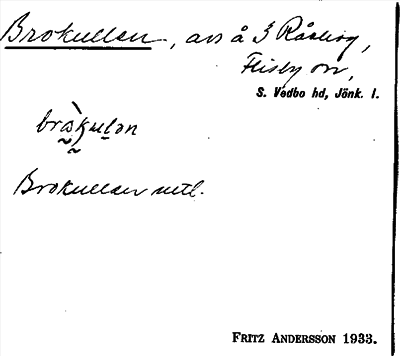 Brokullen, avs å 3 Råsberg,
Flisby sn,
S. Vedbo hd, Jönk. l.
bròkulən
Brokullen uttl.
FRITZ ANDERSSON 1933.